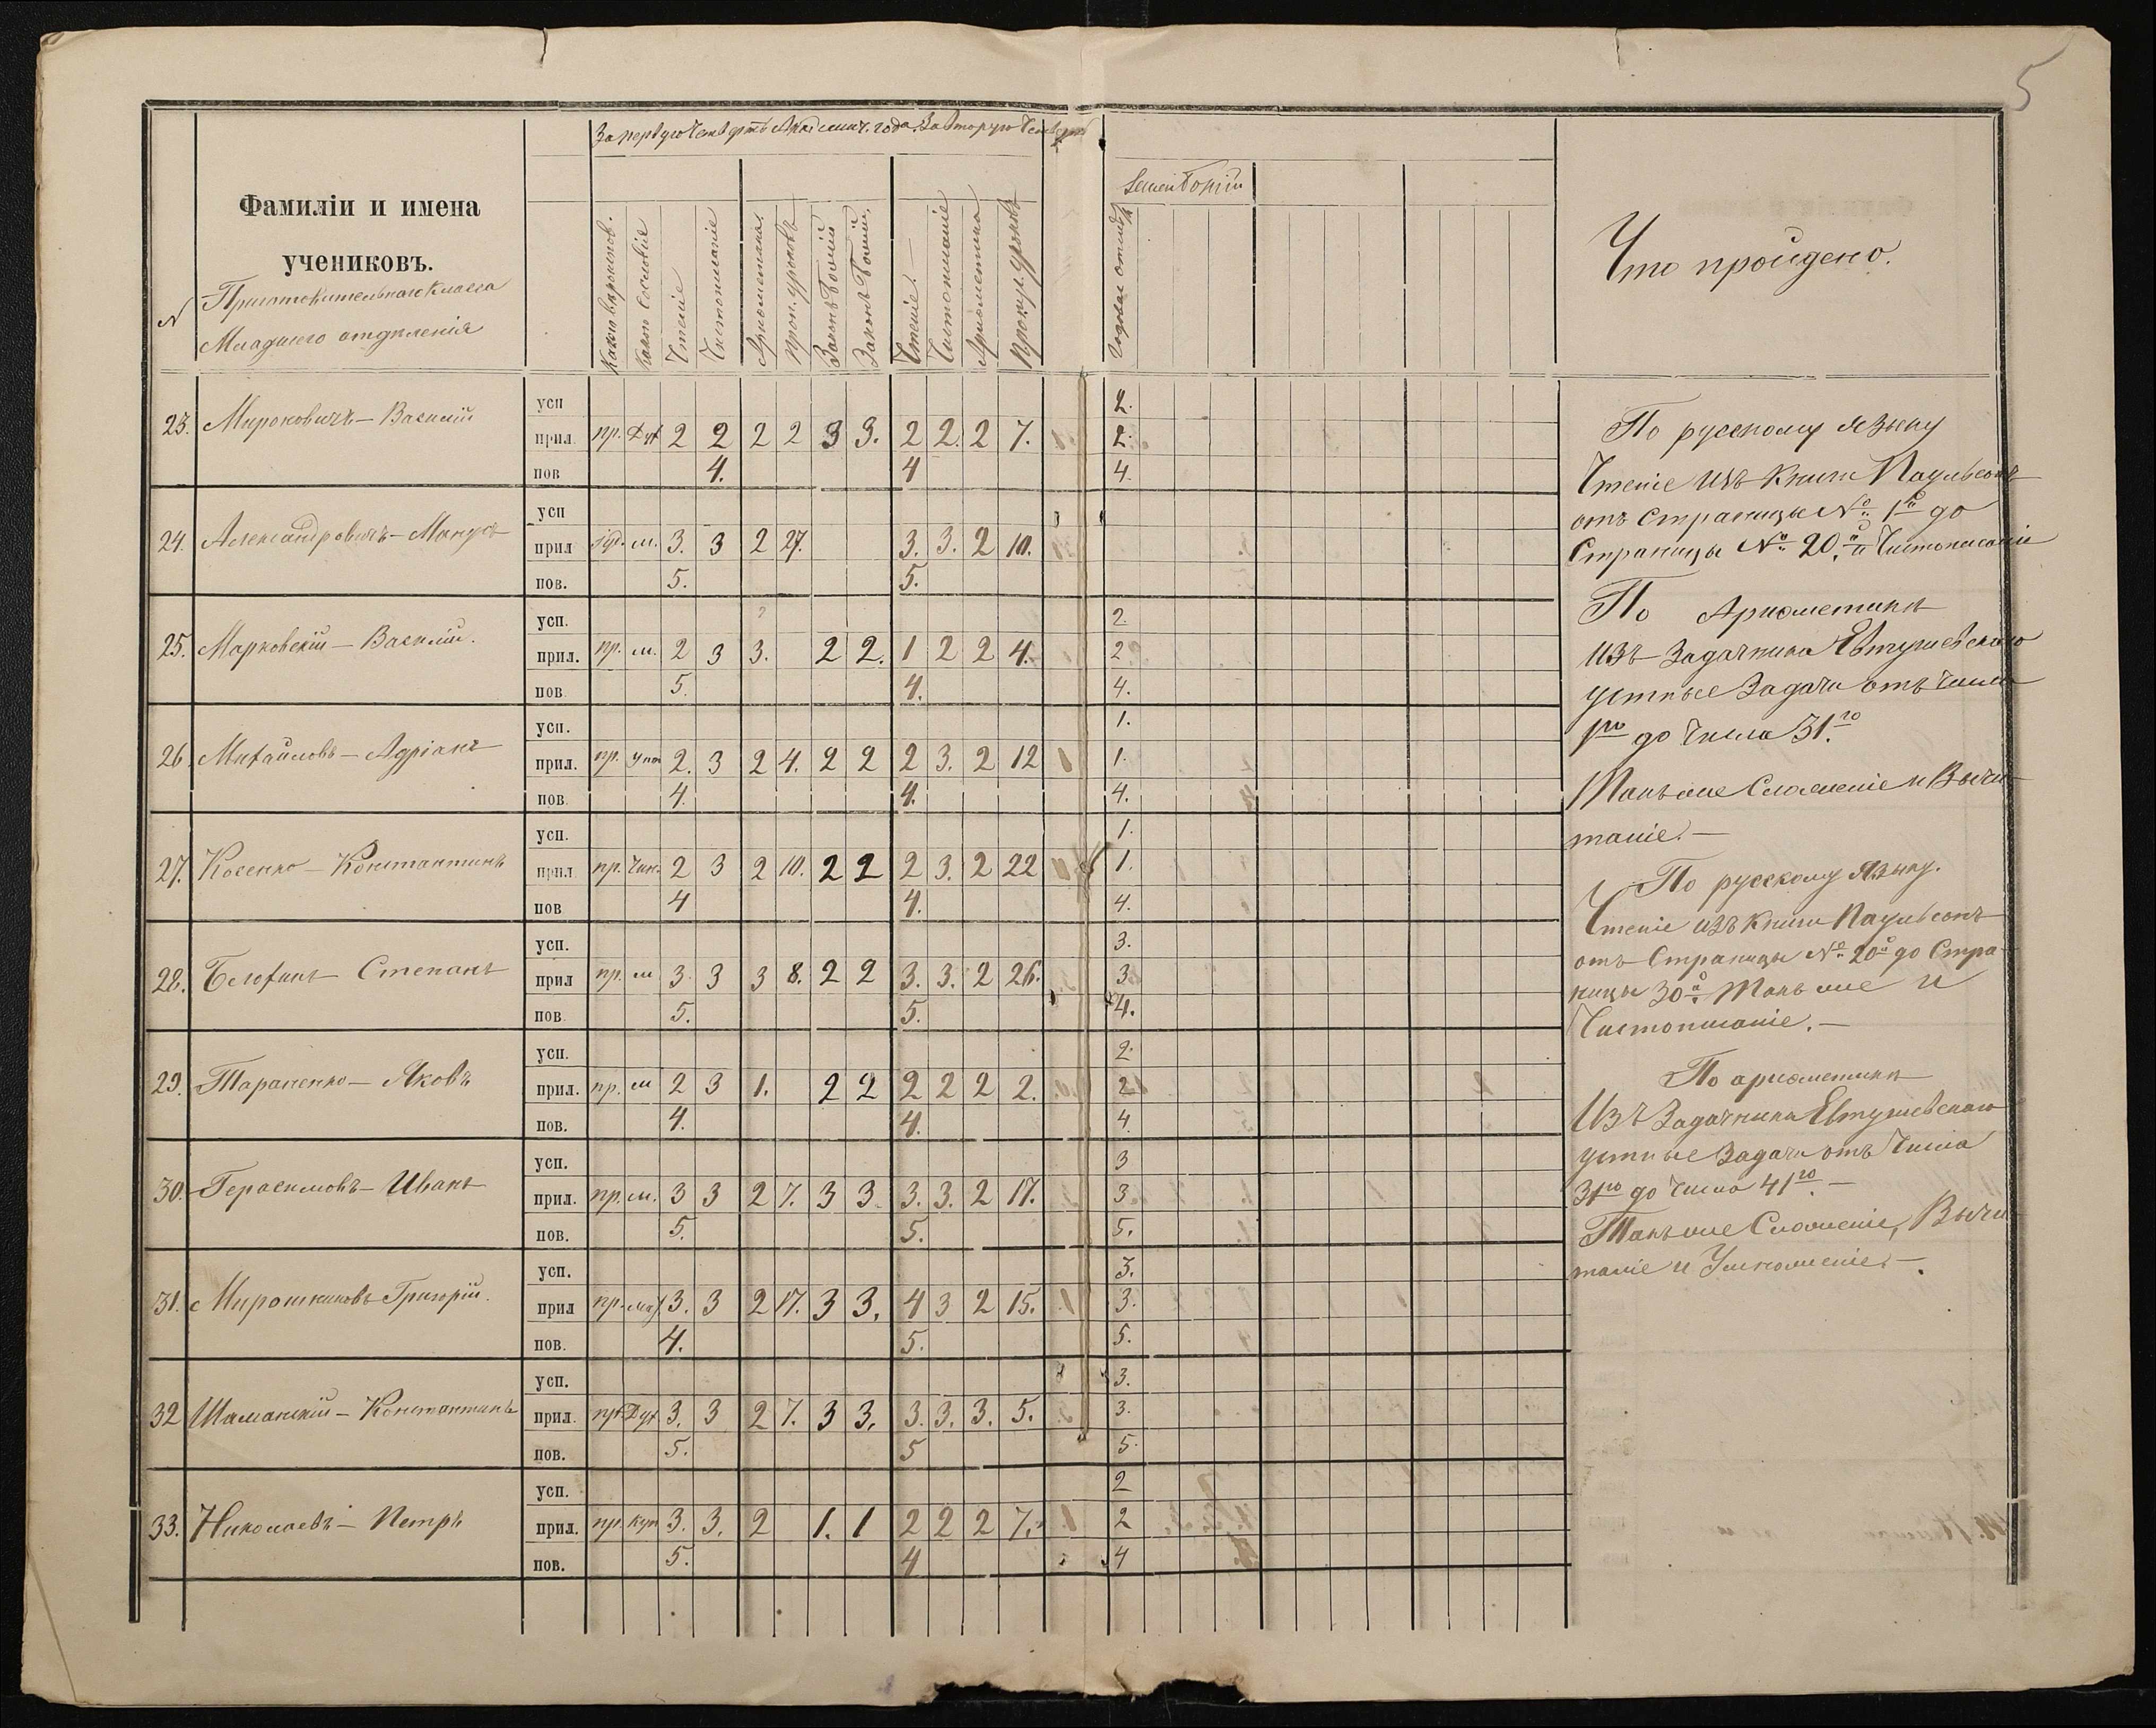 5
За первую Четверть Академич. года. За вторую Четверть
Фамиліи и имена
учениковъ.
Приготовительнаго Класса
Младшего отдѣленія
N
Какого вѣроисповѣд.
Какого Сословія
Чтеніе
Чистописаніе
Арифметика
Проп. уроковъ
Законъ Божій
Законъ Божій.
Чтеніе. —
Чистописаніе
Арифметика
Пропущ. уроковъ
Годовые отмѣтк
Что пройдено.
23. Мироковичъ — Василій
усп 2.
прил. пр. Дух 2 2 2 2 3 3. 2 2. 2 7. 2.
пов 4. 4 4.
24. Александровичъ — Манусъ
усп
прил іуд. м. 3. 3 2 27. 3. 3. 2 10.
пов. 5. 5.
25. Марковскій — Василій.
усп. 2.
прил. пр. м. 2 3 3. 2 2. 1 2 2 4. 2
пов 5. 4. 4.
26 Михайловъ — Адріанъ
усп. 1.
прил. пр. 2. 3 2 4. 2 2 2 3. 2 12 1.
пов. 4. 4. 4.
27. Косенко — Константинъ
усп. 1.
прил пр. Чин. 2 3 2 10. 2 2 2 3. 2 22 1.
пов 4 4. 4.
28. Белохинъ — Степанъ
усп. 3.
прил пр. м 3. 3 3 8. 2 2 3. 3. 2 26. 3
пов 5. 5. 4.
29. Тараненко — Яковъ
усп. 2.
прил. пр. м 2 3 1. 2 2 2 2 2 2. 2
пов. 4. 4. 4.
30. Герасимовъ — Иванъ
усп. 3
прил. пр. м. 3 3 2 7. 3 3 3. 3. 2 17. 3
пов. 5. 5. 5.
31. Мирошниковъ Григорій.
усп. 3.
прил пр. 3. 3 2 17. 3 3. 4 3 2 15. 3.
пов. 4. 5. 5.
32 Шаманскій — Константинъ
усп. 3.
прил. пр. Дух 3. 3 2 7. 3 3. 3. 3. 3. 5. 3.
пов. 5. 5 5.
33. Николаевъ — Петръ
усп. 2
прил. пр. куп 3. 3. 2 1. 1 2 2 2 7. 2
пов. 5. 4 4
По русскому языку
Чтеніе изъ книги Паульсонъ
отъ Страницы №. 1й до
Страницы №. 20.й и Чистописаніе
По Арифметикѣ
Изъ Задачника Евтушевскаго
устные Задачи отъ Числа
1го до Числа 31.го
Такъ же Сложеніе и Вычи
таніе. —
По русскому языку.
Чтеніе изъ книги Паульсонъ
отъ Страницы №. 20й до Стра-
ницы 30й. Такъ же и
Чистописаніе. —
По арифметикѣ
Изъ Задачника Евтушевскаго
устные Задачи отъ Числа
31го до Числа 41го. —
Такъ же Сложеніе, Вычи
таніе и Умноженіе. —